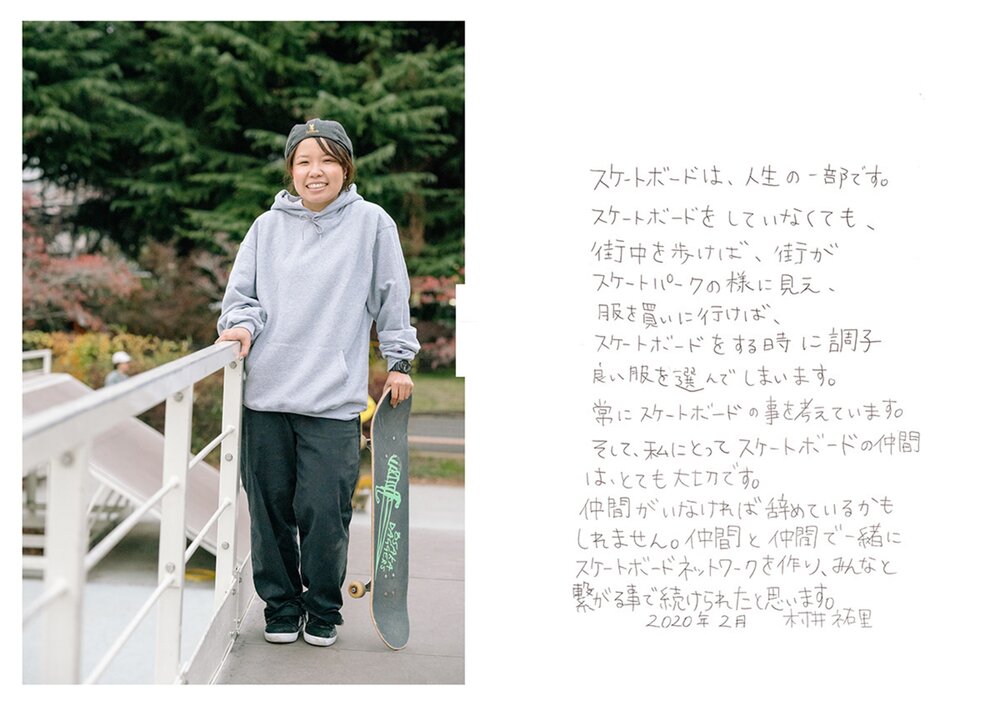 スケートボードは、人生の一部です。
スケートボードをしていなくても、
街中を歩けば、街が
スケートパークの様に見え、
服を買いに行けば、
スケートボードをする時に調子
良い服を選んでしまいます。
常にスケートボードの事を考えています。
そして、私にとってスケートボードの仲間
は、とても大切です。
仲間がいなければ辞めているかも
しれません。仲間と仲間で一緒に
スケートボードネットワークを作り、みんなと
繋がる事で続けられたと思います。
2020年2月 村井祐里
OSOKA
DAGGERS